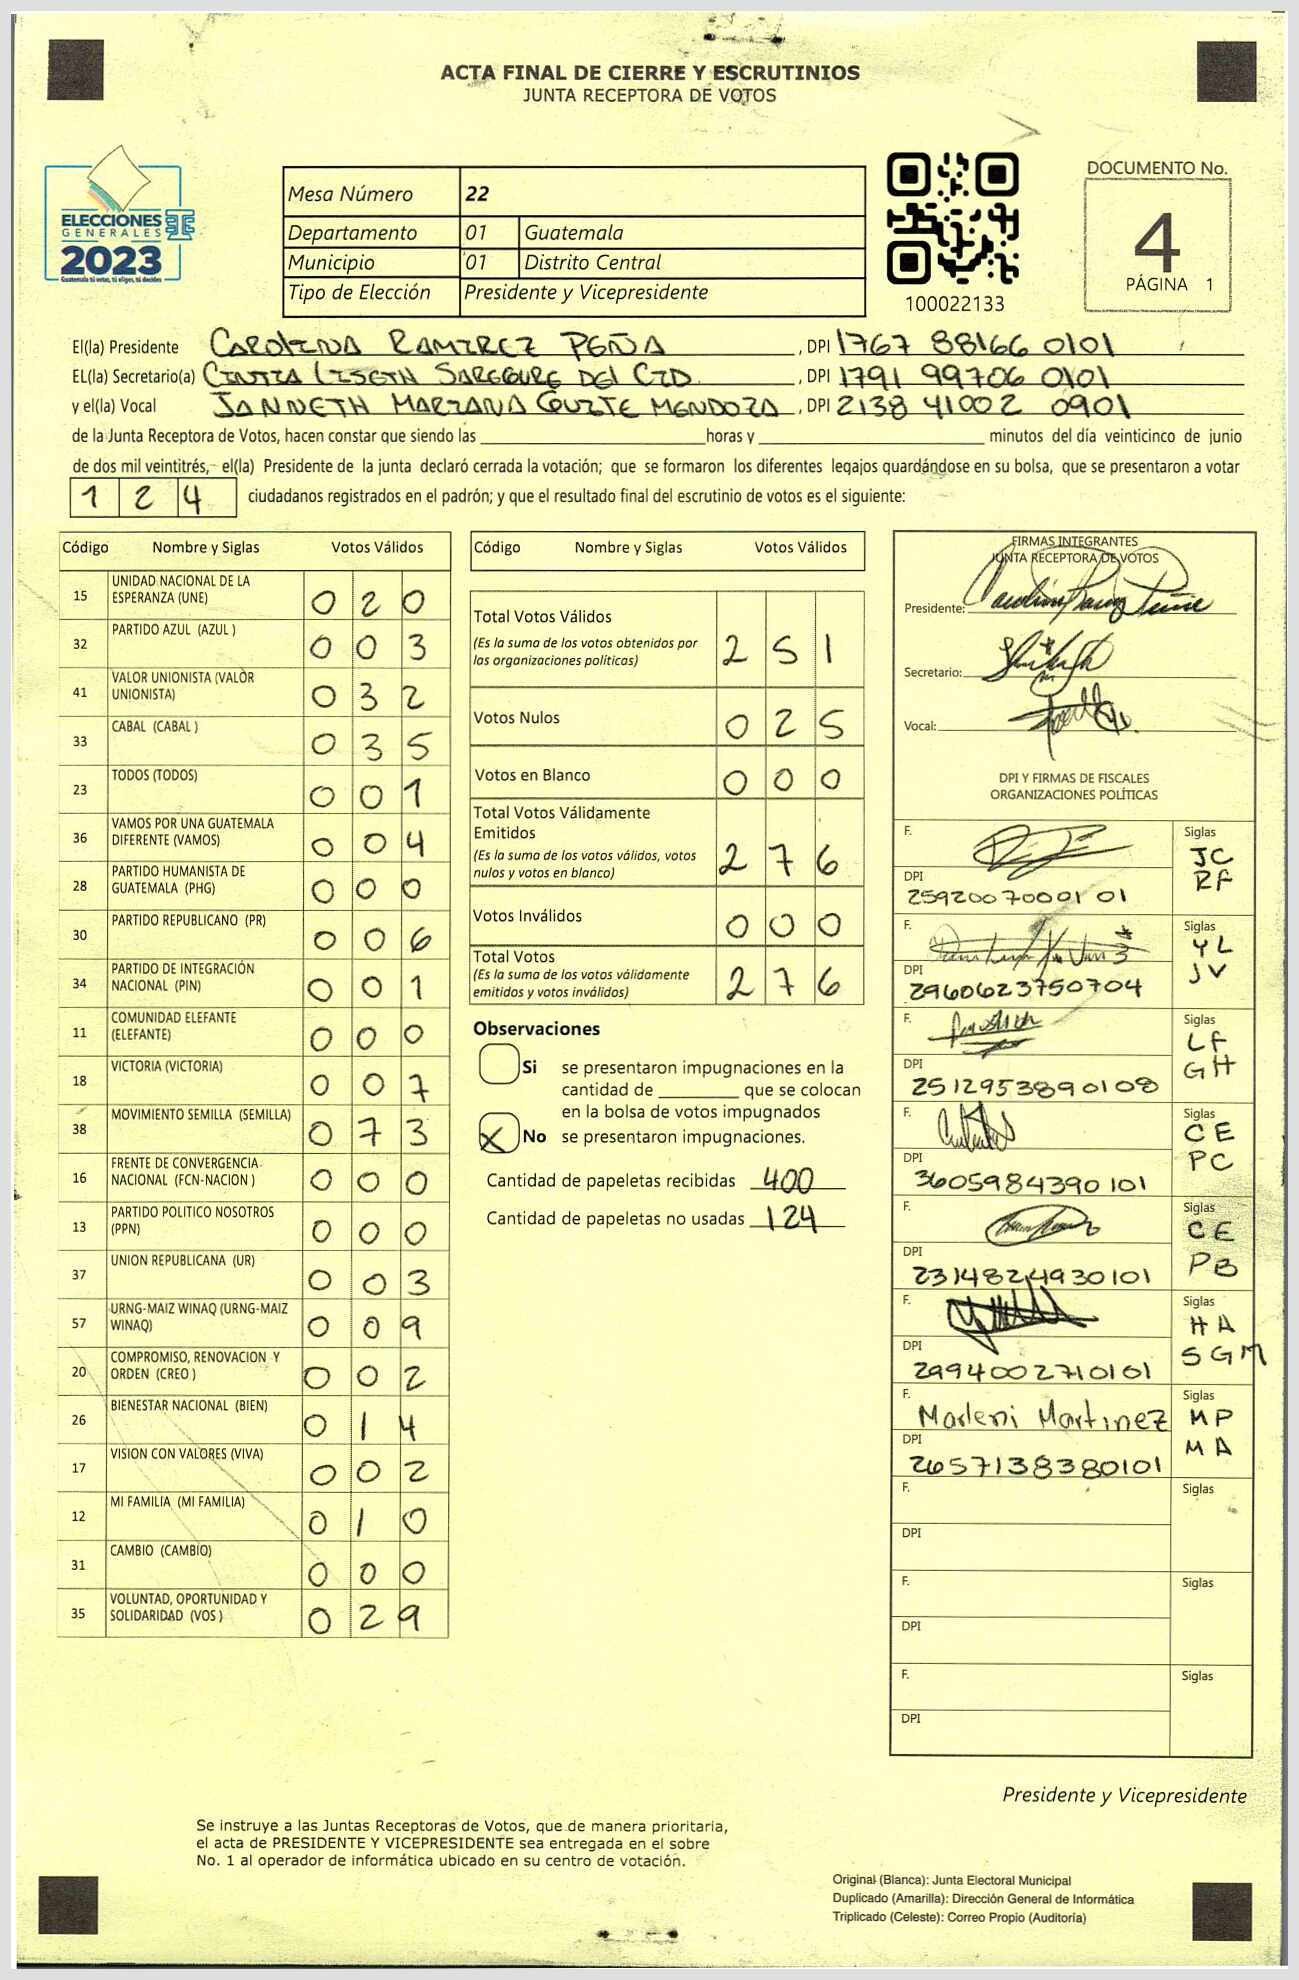 ACTA FINAL DE CIERRE Y ESCRUTINIOS
JUNTA RECEPTORA DE VOTOS
ELECCIONES
GENERALES
2023
Guatemala tú votas, tú eliges, tú decides
Mesa Número 22
Departamento 01 Guatemala
Municipio 01 Distrito Central
Tipo de Elección Presidente y Vicepresidente
100022133
DOCUMENTO No.
4
PÁGINA 1
El(la) Presidente CAROLINA RAMIREZ PEÑA, DPI 1767 88166 0101
EL(la) Secretario(a) CINTIA LISETH DEL CID, DPI 1791 99706 0101
y el(la) Vocal JANNETH MARIANA MENDOZA, DPI 2138 41002 0901
de la Junta Receptora de Votos, hacen constar que siendo las ____ horas y ____ minutos del día veinticinco de junio
de dos mil veintitrés, el(la) Presidente de la junta declaró cerrada la votación; que se formaron los diferentes legajos guardándose en su bolsa, que se presentaron a votar
124 ciudadanos registrados en el padrón; y que el resultado final del escrutinio de votos es el siguiente:
Código Nombre y Siglas Votos Válidos
15 UNIDAD NACIONAL DE LA ESPERANZA (UNE) 020
32 PARTIDO AZUL (AZUL ) 003
41 VALOR UNIONISTA (VALOR UNIONISTA) 032
33 CABAL (CABAL ) 035
23 TODOS (TODOS) 001
36 VAMOS POR UNA GUATEMALA DIFERENTE (VAMOS) 004
28 PARTIDO HUMANISTA DE GUATEMALA (PHG) 000
30 PARTIDO REPUBLICANO (PR) 006
34 PARTIDO DE INTEGRACIÓN NACIONAL (PIN) 001
11 COMUNIDAD ELEFANTE (ELEFANTE) 000
18 VICTORIA (VICTORIA) 007
38 MOVIMIENTO SEMILLA (SEMILLA) 073
16 FRENTE DE CONVERGENCIA NACIONAL (FCN-NACION ) 000
13 PARTIDO POLITICO NOSOTROS (PPN) 000
37 UNION REPUBLICANA (UR) 003
57 URNG-MAIZ WINAQ (URNG-MAIZ WINAQ) 009
20 COMPROMISO, RENOVACION Y ORDEN (CREO ) 002
26 BIENESTAR NACIONAL (BIEN) 014
17 VISION CON VALORES (VIVA) 002
12 MI FAMILIA (MI FAMILIA) 010
31 CAMBIO (CAMBIO) 000
35 VOLUNTAD, OPORTUNIDAD Y SOLIDARIDAD (VOS ) 029
Código Nombre y Siglas Votos Válidos
Total Votos Válidos 251
(Es la suma de los votos obtenidos por
las organizaciones políticas)
Votos Nulos 025
Votos en Blanco 000
Total Votos Válidamente
Emitidos 276
(Es la suma de los votos válidos, votos
nulos y votos en blanco)
Votos Inválidos 000
Total Votos 276
(Es la suma de los votos válidamente
emitidos y votos inválidos)
Observaciones
Si se presentaron impugnaciones en la
cantidad de ____ que se colocan
en la bolsa de votos impugnados
X No se presentaron impugnaciones.
Cantidad de papeletas recibidas 400
Cantidad de papeletas no usadas 124
FIRMAS INTEGRANTES
JUNTA RECEPTORA DE VOTOS
Presidente:
Secretario:
Vocal:
DPI Y FIRMAS DE FISCALES
ORGANIZACIONES POLÍTICAS
F. Siglas JC RF
DPI 2592007000101
F. Siglas YL JV
DPI 2960623750704
F. Siglas LF GH
DPI 2512953890108
F. Siglas CE PC
DPI 3605984390101
F. Siglas CE PB
DPI 2314824930101
F. Siglas HA SGM
DPI 2994002710101
F. Marleni Martinez Siglas MP MA
DPI 2657138380101
F. Siglas
DPI
F. Siglas
DPI
F. Siglas
DPI
Presidente y Vicepresidente
Se instruye a las Juntas Receptoras de Votos, que de manera prioritaria,
el acta de PRESIDENTE Y VICEPRESIDENTE sea entregada en el sobre
No. 1 al operador de informática ubicado en su centro de votación.
Original (Blanca): Junta Electoral Municipal
Duplicado (Amarilla): Dirección General de Informática
Triplicado (Celeste): Correo Propio (Auditoría)